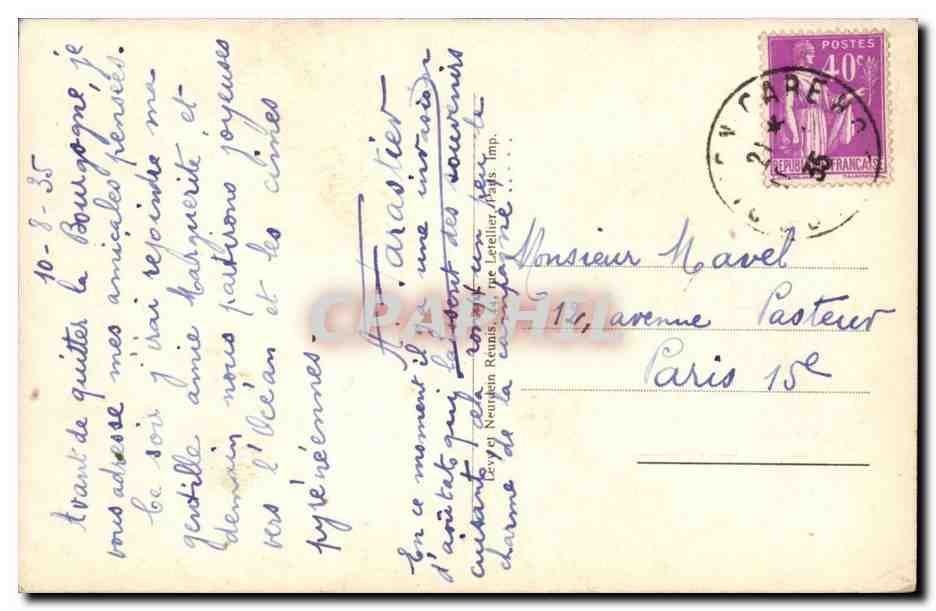 10-8-35
Avant de quitter la Bourgogne, je
vous adresse mes amicales pensées.
Ce soir j'irai rejoindre ma
gentille amie Marguerite et
demain nous partirons joyeuses
vers l'Océan et les cimes
pyrénéennes.
A. Tarastier
En ce moment il y a une invasion
d'aoûtats qui laissent des souvenirs
cuisants et a rompt un peu le
charme de la campagne.....
Lévy et Neurdein Réunis, 44, rue Letellier, Paris Imp.
CPARHEL
POSTES
40c
REPUBLIQUE FRANÇAISE
35
Monsieur Mavel
12, avenue Pasteur
Paris 15e